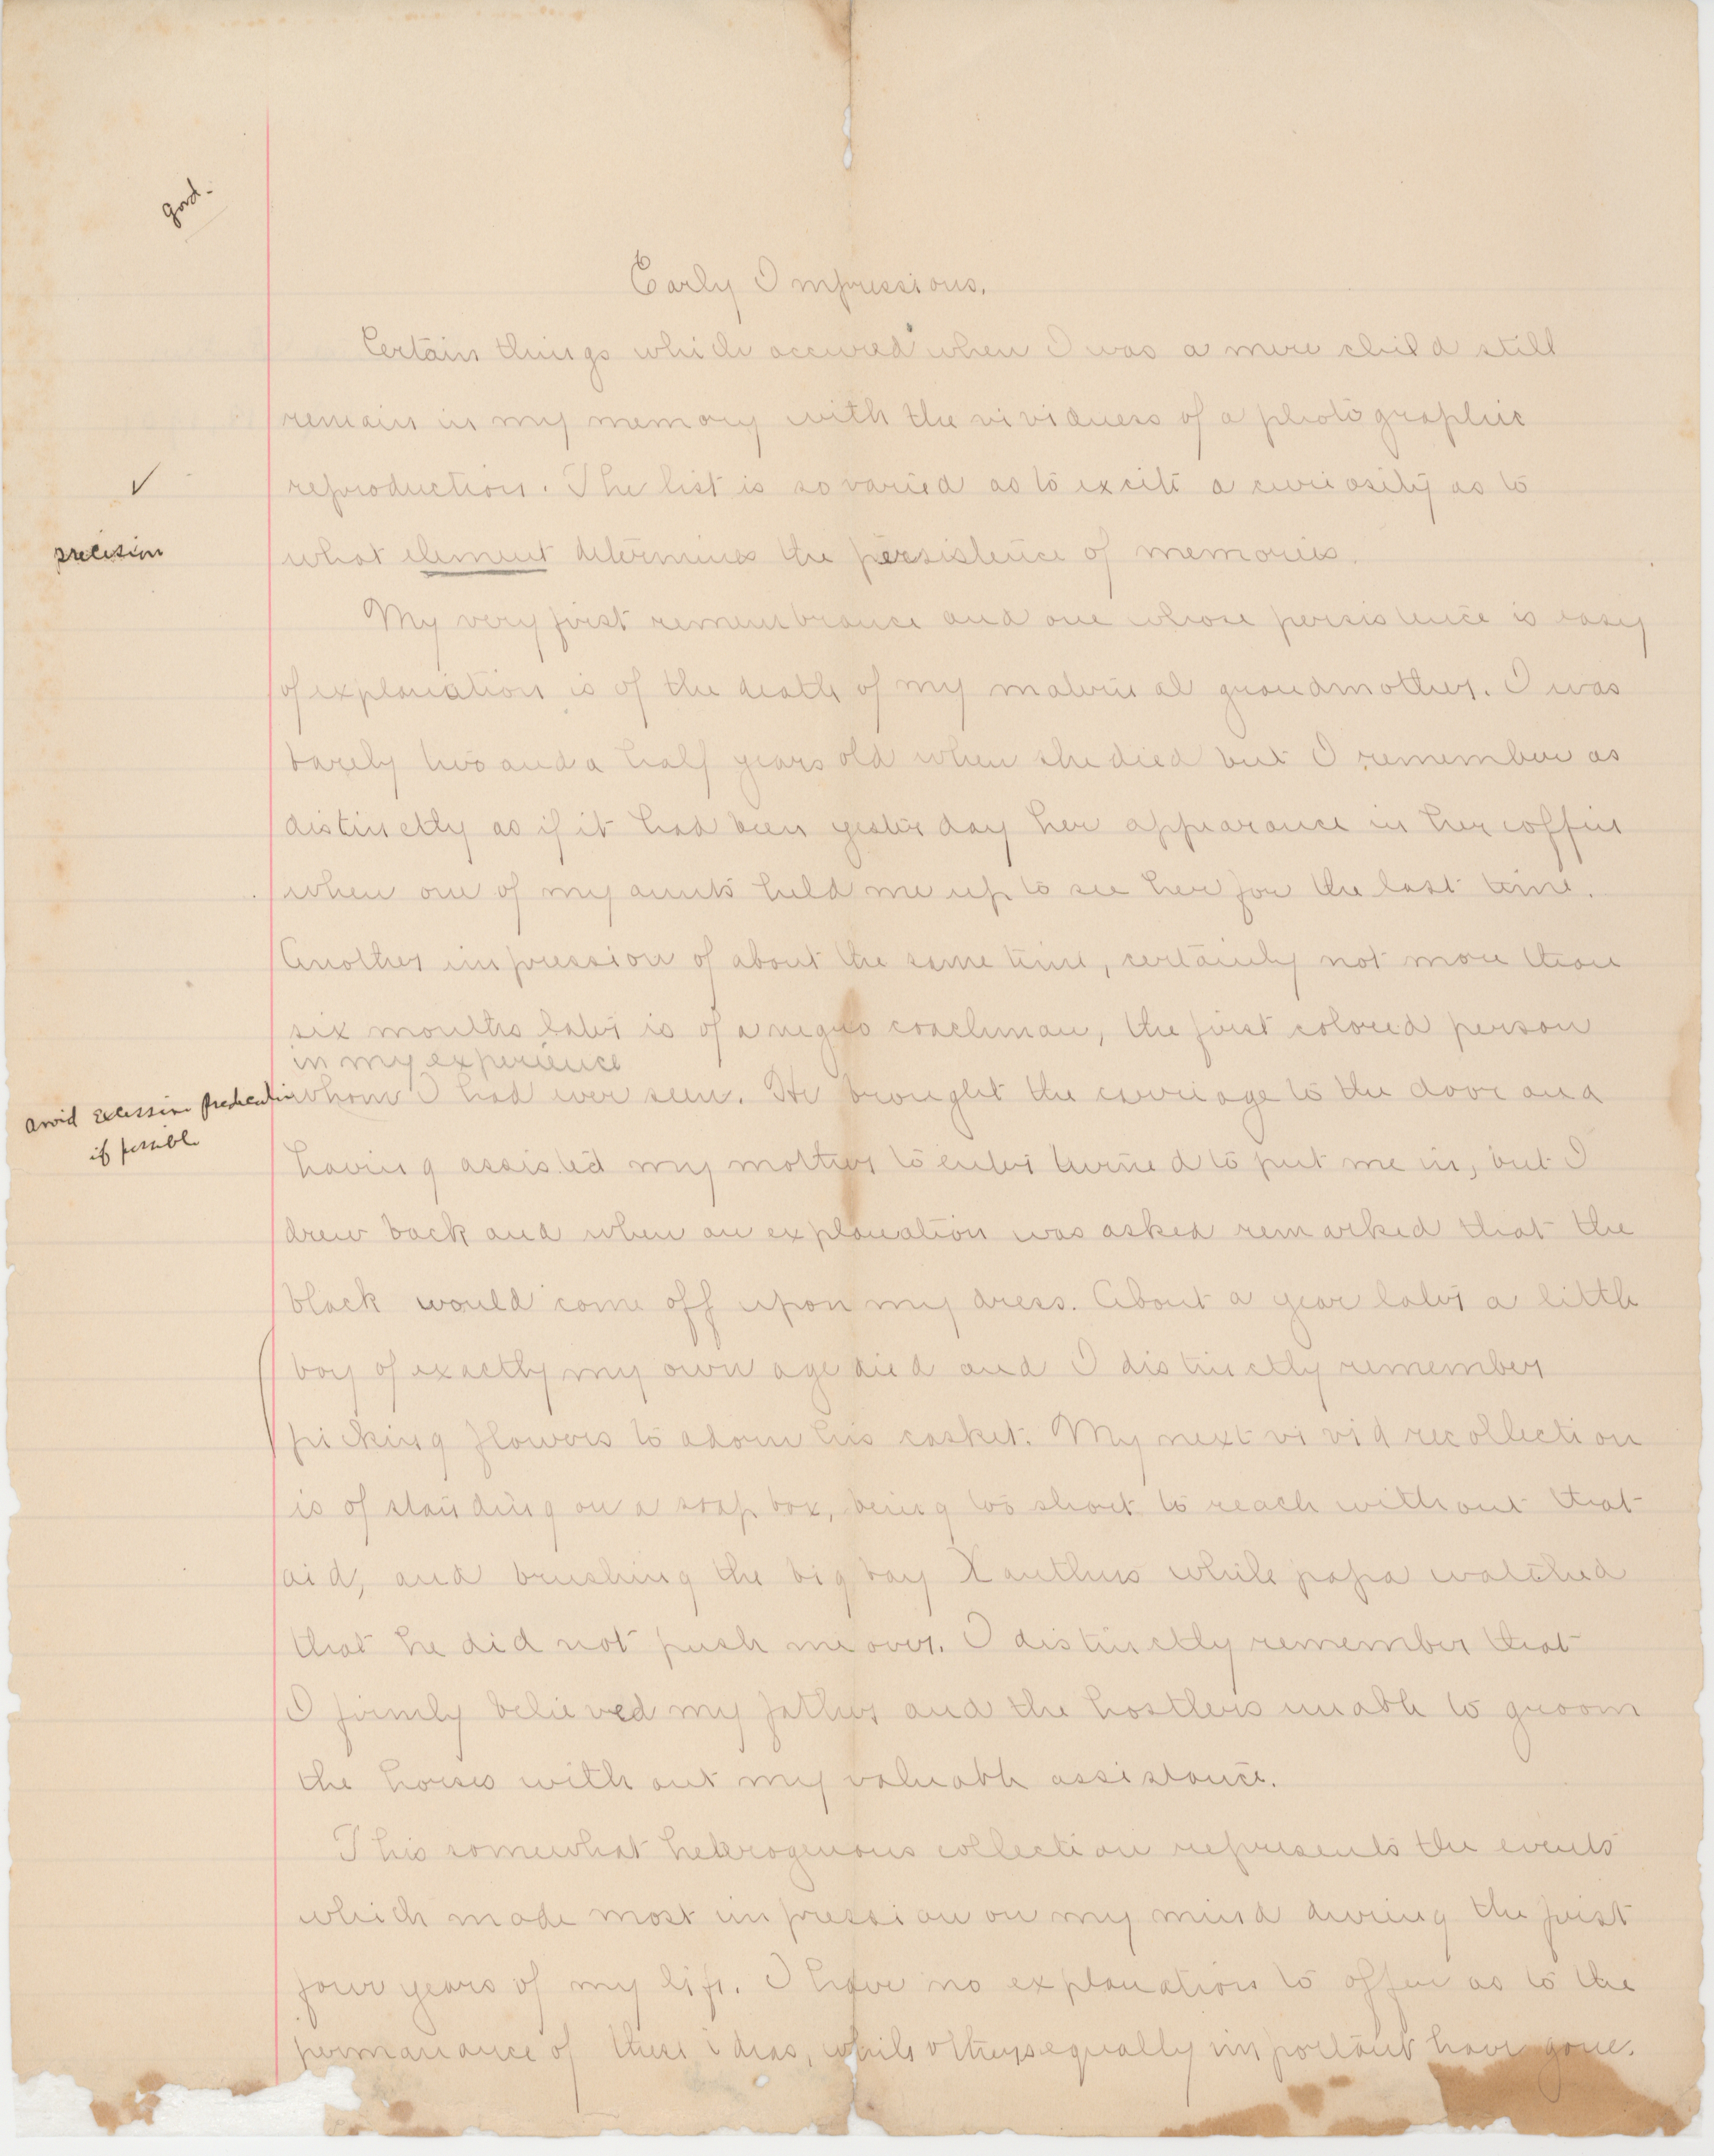 good.
Early Impressions.
Certain things which occured when I was a mere child still
remain in my memory with the vividness of a photographic
reproduction. The list is so varied as to excite a curiosity as to
✓
precision
what element determines the persistence of memories.
My very first remembrance and one whose persistence is easy
of explanation is of the death of my maternal grandmother. I was
barely two and a half years old when she died but I remember as
distinctly as if it had been yesterday her appearance in her coffin
when one of my aunts held me up to see her for the last time.
Another impression of about the same time, certainly not more than
six months later is of a negro coachman, the first colored person
in my experience
whom I had ever seen. He brought the carriage to the door and
avoid excessive predication
if possible
having assisted my mother to enter turned to put me in, but I
drew back and when an explanation was asked remarked that the
black would come off upon my dress. About a year later a little
boy of exactly my own age died and I distinctly remember
picking flowers to adorn his casket. My next vivid recollection
is of standing on a soap box, being too short to reach without that
aid, and brushing the big bay Xanthus while papa watched
that he did not push me over. I distinctly remember that
I firmly believed my father and the hostlers unable to groom
the horses without my valuable assistance.
This somewhat heterogenous collection represents the events
which made most impression on my mind during the first
four years of my life. I have no explanation to offer as to the
permanance of these ideas, while others equally important have gone.